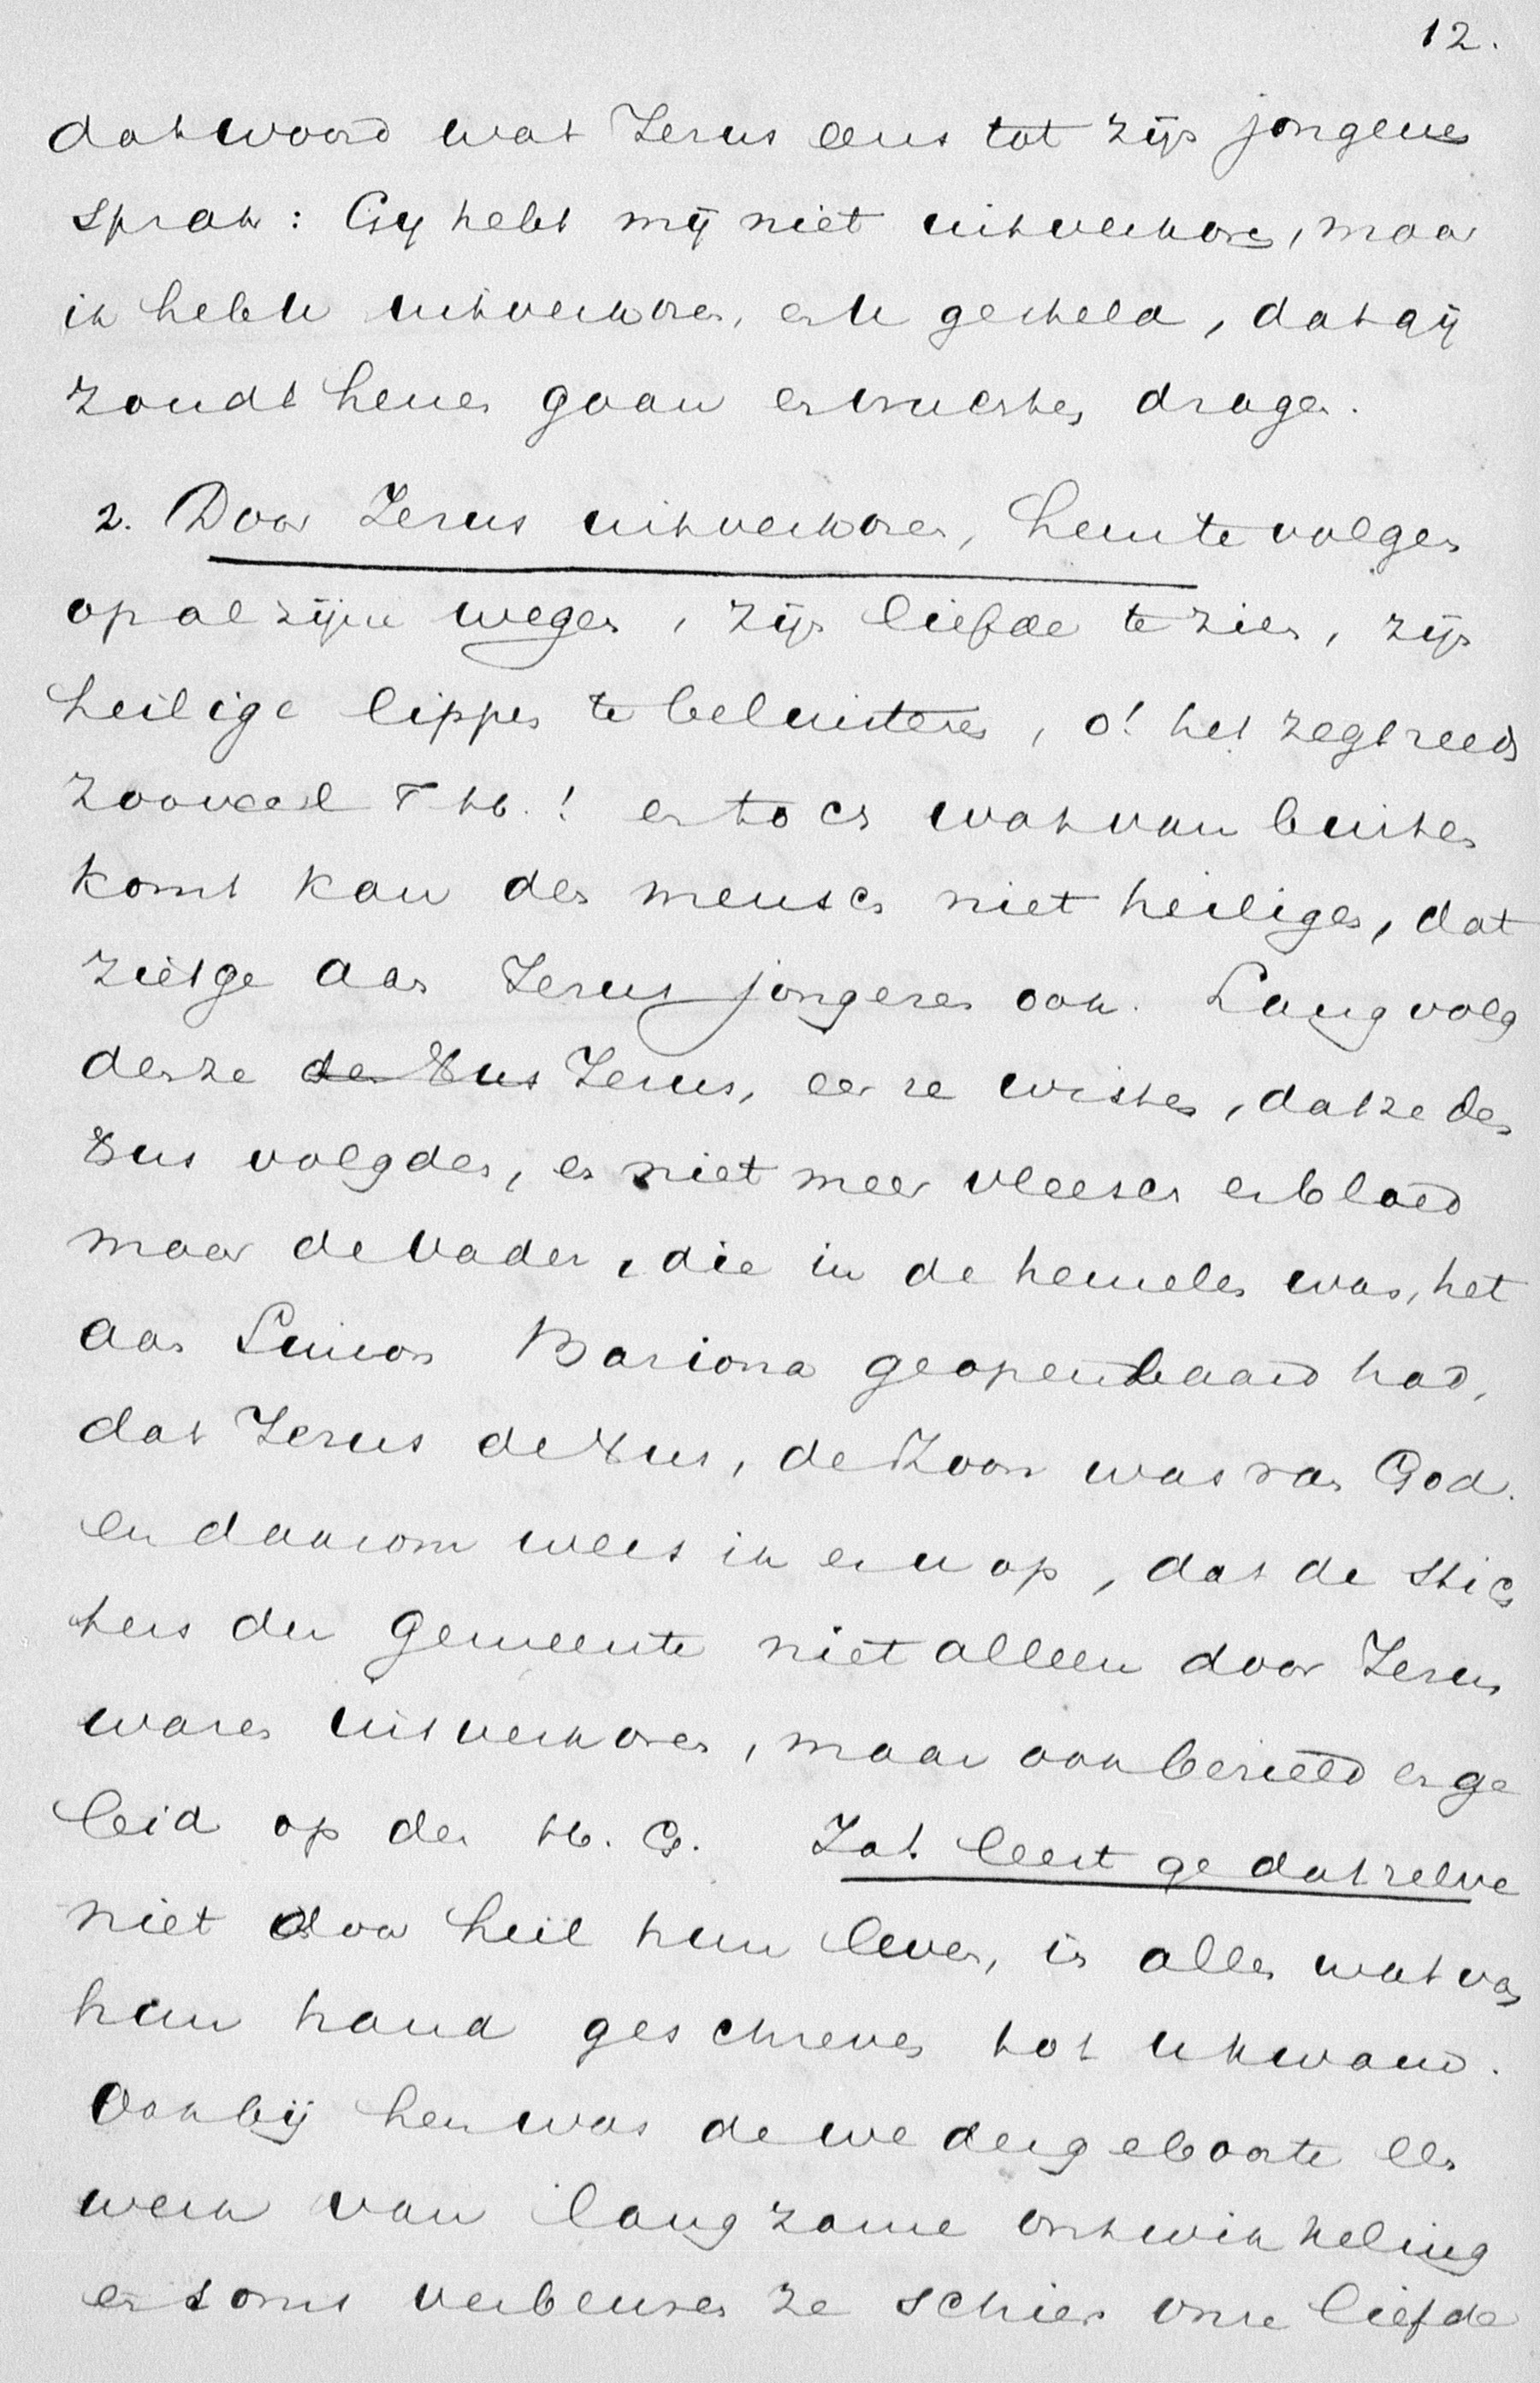 12.
dat woord wat Jezus eens tot zijn jongeren
sprak: Gij hebt mij niet uitverkoren, maar
ik heb u uitverkoren, en u gesteld, dat gij
zoudt henen gaan en vruchten dragen.
2. Door Jezus uitverkoren, hem te volgen
op al zijne wegen, zijn liefde te zien, zijn
heilige lippen te beluisteren, o! het zegt reeds
zooveel T H.! en toch wat van buiten
komt kan den mensch niet heiligen, dat
ziet ge aan Jezus jongeren ook. Lang volg
den ze den Xtus Jezus, eer ze wisten, dat ze den
Xtus volgden, en niet meer vleesch en bloed
maar de Vader, die in de hemelen was, het
aan Simon Bariona geopenbaard had,
dat Jezus de Xtus, de Zoon was van God.
en daarom wees ik er u op, dat de stich
ters der gemeente niet alleen door Jezus
waren uitverkoren, maar ook bezield en ge
leid op den H. G. Zat leert ge datzelve
niet door heil hun leven, in alles wat van
hun hand geschreven tot u kwam.
Ook bij hen was de wedergeboorte een
werk van langzame ontwikkeling
en soms verbeuren ze schier onze liefde